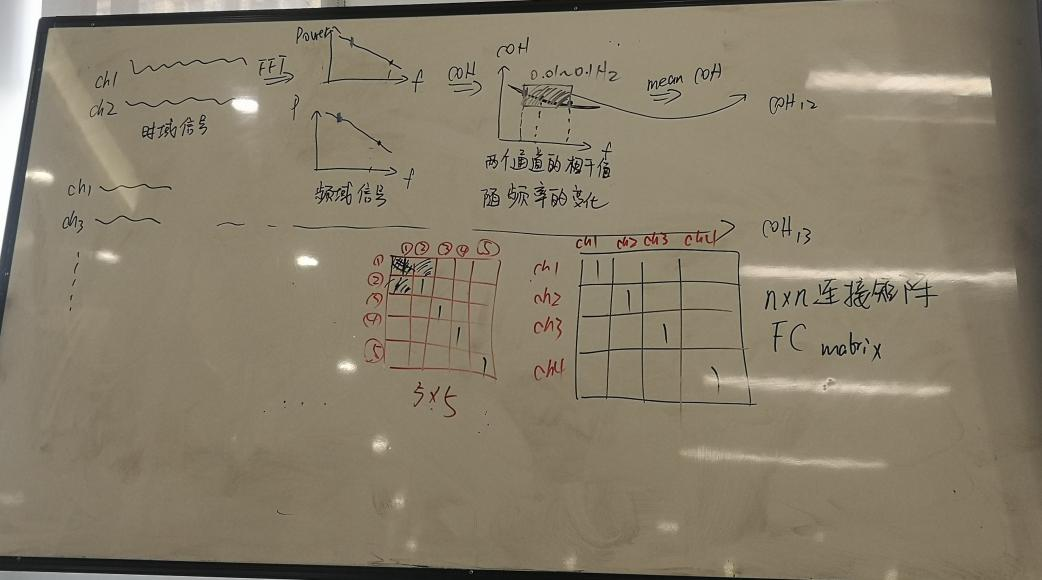 ch1
ch2
时域信号
FFT
Power
f
P
f
频域信号
COH
COH
0.01~0.1Hz
f
两个通道的相干值
随频率的变化
mean COH
COH12
ch1
ch3
COH13
① ② ③ ④ ⑤
①
② 1
③ 1
④ 1
⑤ 1
5×5
ch1 ch2 ch3 ch4
ch1 1
ch2 1
ch3 1
ch4 1
n×n连接矩阵
FC matrix